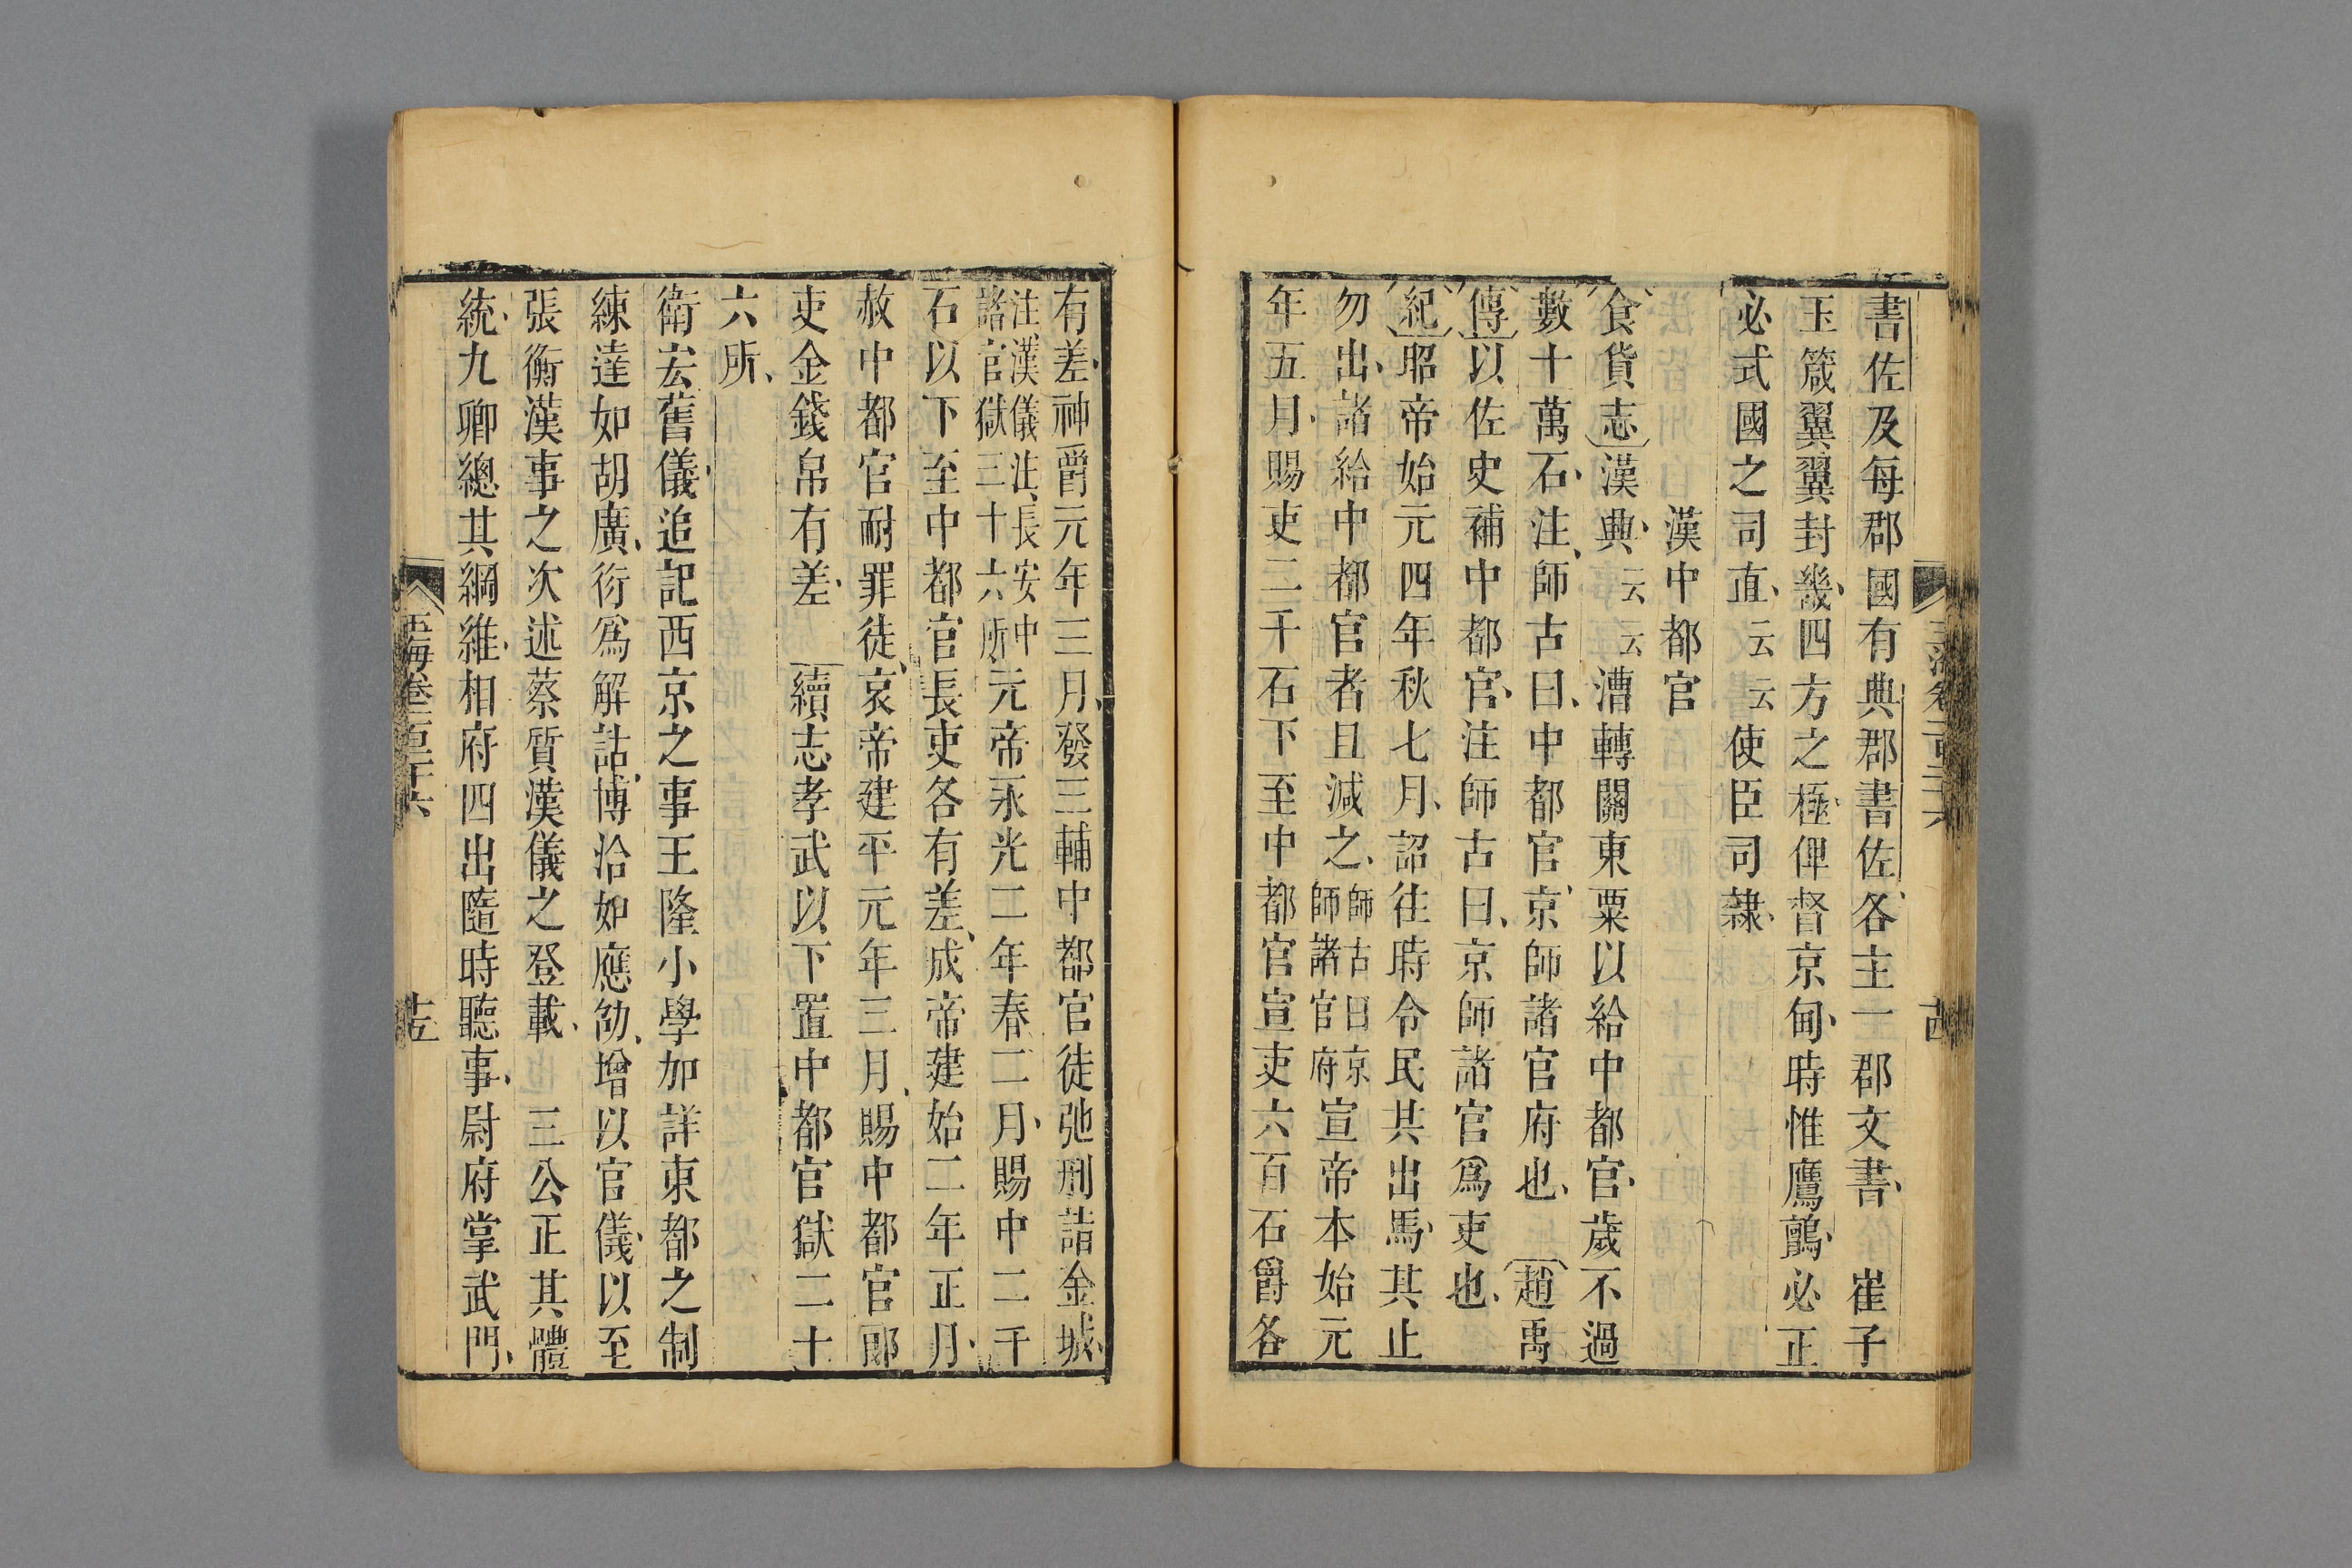 書佐及每郡國有典郡書佐、各主一郡文書、 崔子
玉箴翼翼封畿、四方之極、俾督京甸、時惟鷹鸇、必正
必式國之司直、云云使臣司隸、
漢中都官
食貨志漢典、云云漕轉關東粟以給中都官、歲不過
數十萬石、注、師古曰、中都官、京師諸官府也、 趙禹
傳以佐史補中都官、注師古曰、京師諸官爲吏也、
紀昭帝始元四年秋七月、詔往時令民共出馬、其止
勿出、諸給中都官者且減之、師古曰京師諸官府宣帝本始元
年五月、賜吏二千石下至中都官宣吏六百石爵各
有差、神爵元年三月、發三輔中都官徒弛刑詣金城、
注、漢儀注、長安中諸官獄三十六所、元帝永光二年春二月、賜中二千
石以下至中都官長吏各有差、成帝建始二年正月、
赦中都官耐罪徒、哀帝建平元年三月、賜中都官郎
吏金錢帛有差、 續志孝武以下置中都官獄二十
六所、
衛宏舊儀、追記西京之事王隆小學加詳東都之制
練達如胡廣、衍爲解詁、博洽如應劭、增以官儀、以至
張衡漢事之次述蔡質漢儀之登載、 三公正其體
統、九卿總其綱維、相府四出隨時聽事、尉府掌武門、
玉海卷一百二十六
十五